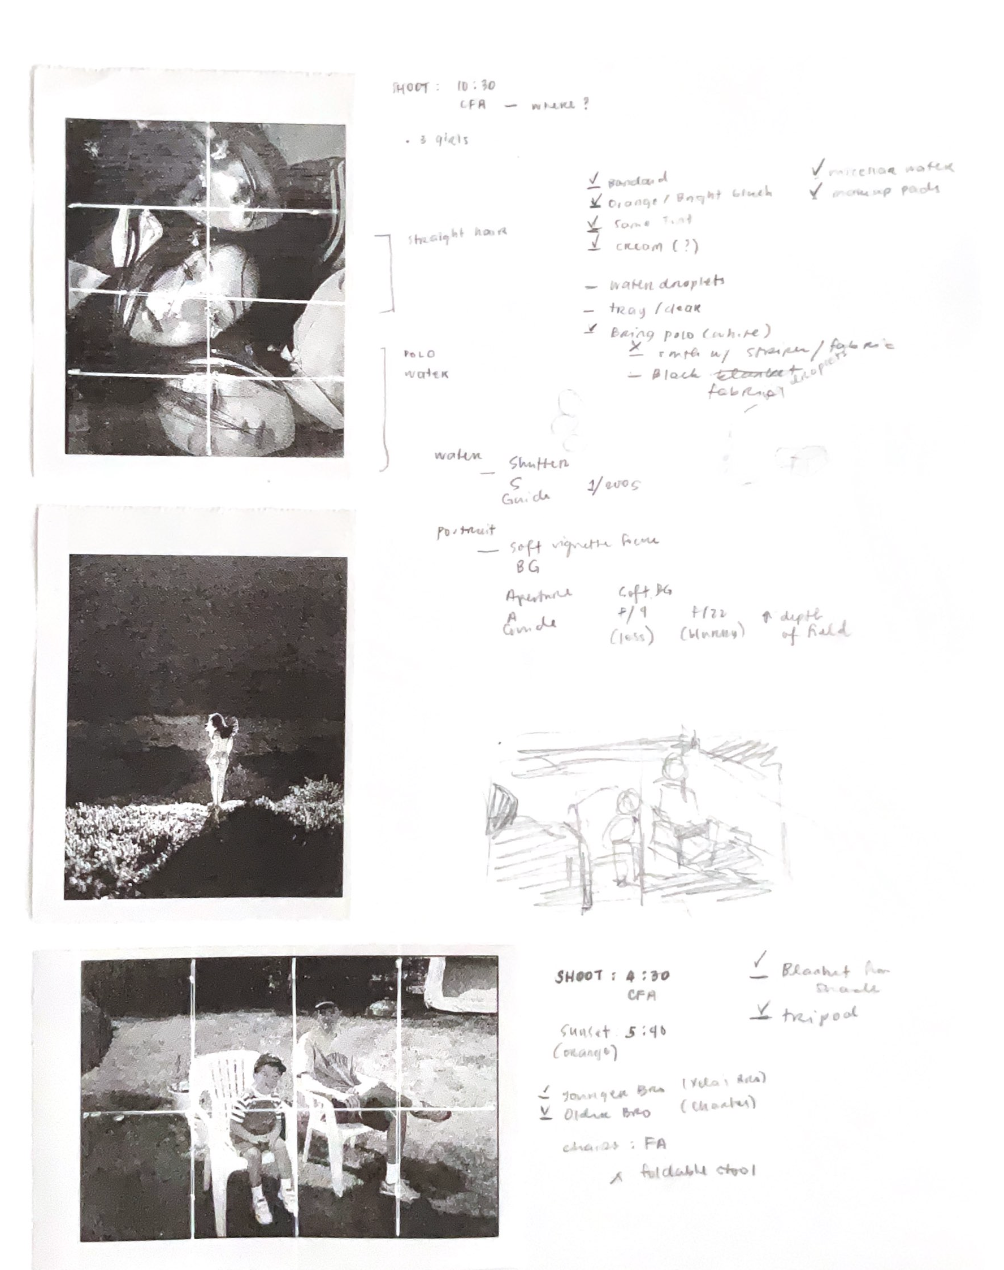 SHOOT: 10:30
CFA — where?
• 3 girls
Bandaid
Orange / Bright blush
Same Tint
cream (?)
micellar water
makeup pads
straight hair
– water droplets
– tray / clear
Bring polo (white)
w/ / fabric
– Black blanket droplets
fabric
POLO
water
water
– Shutter
S
Guide 1/200s
portrait
– soft vignette focus
BG
Aperture Soft BG
A f/4 f/22 ↑ depth
Guide (less) (blurry) of field
SHOOT: 4:30
CFA
Sunset 5:40
(orange)
Blanket from
tripod
Younger Bro
Older Bro
chairs: FA
x foldable stool